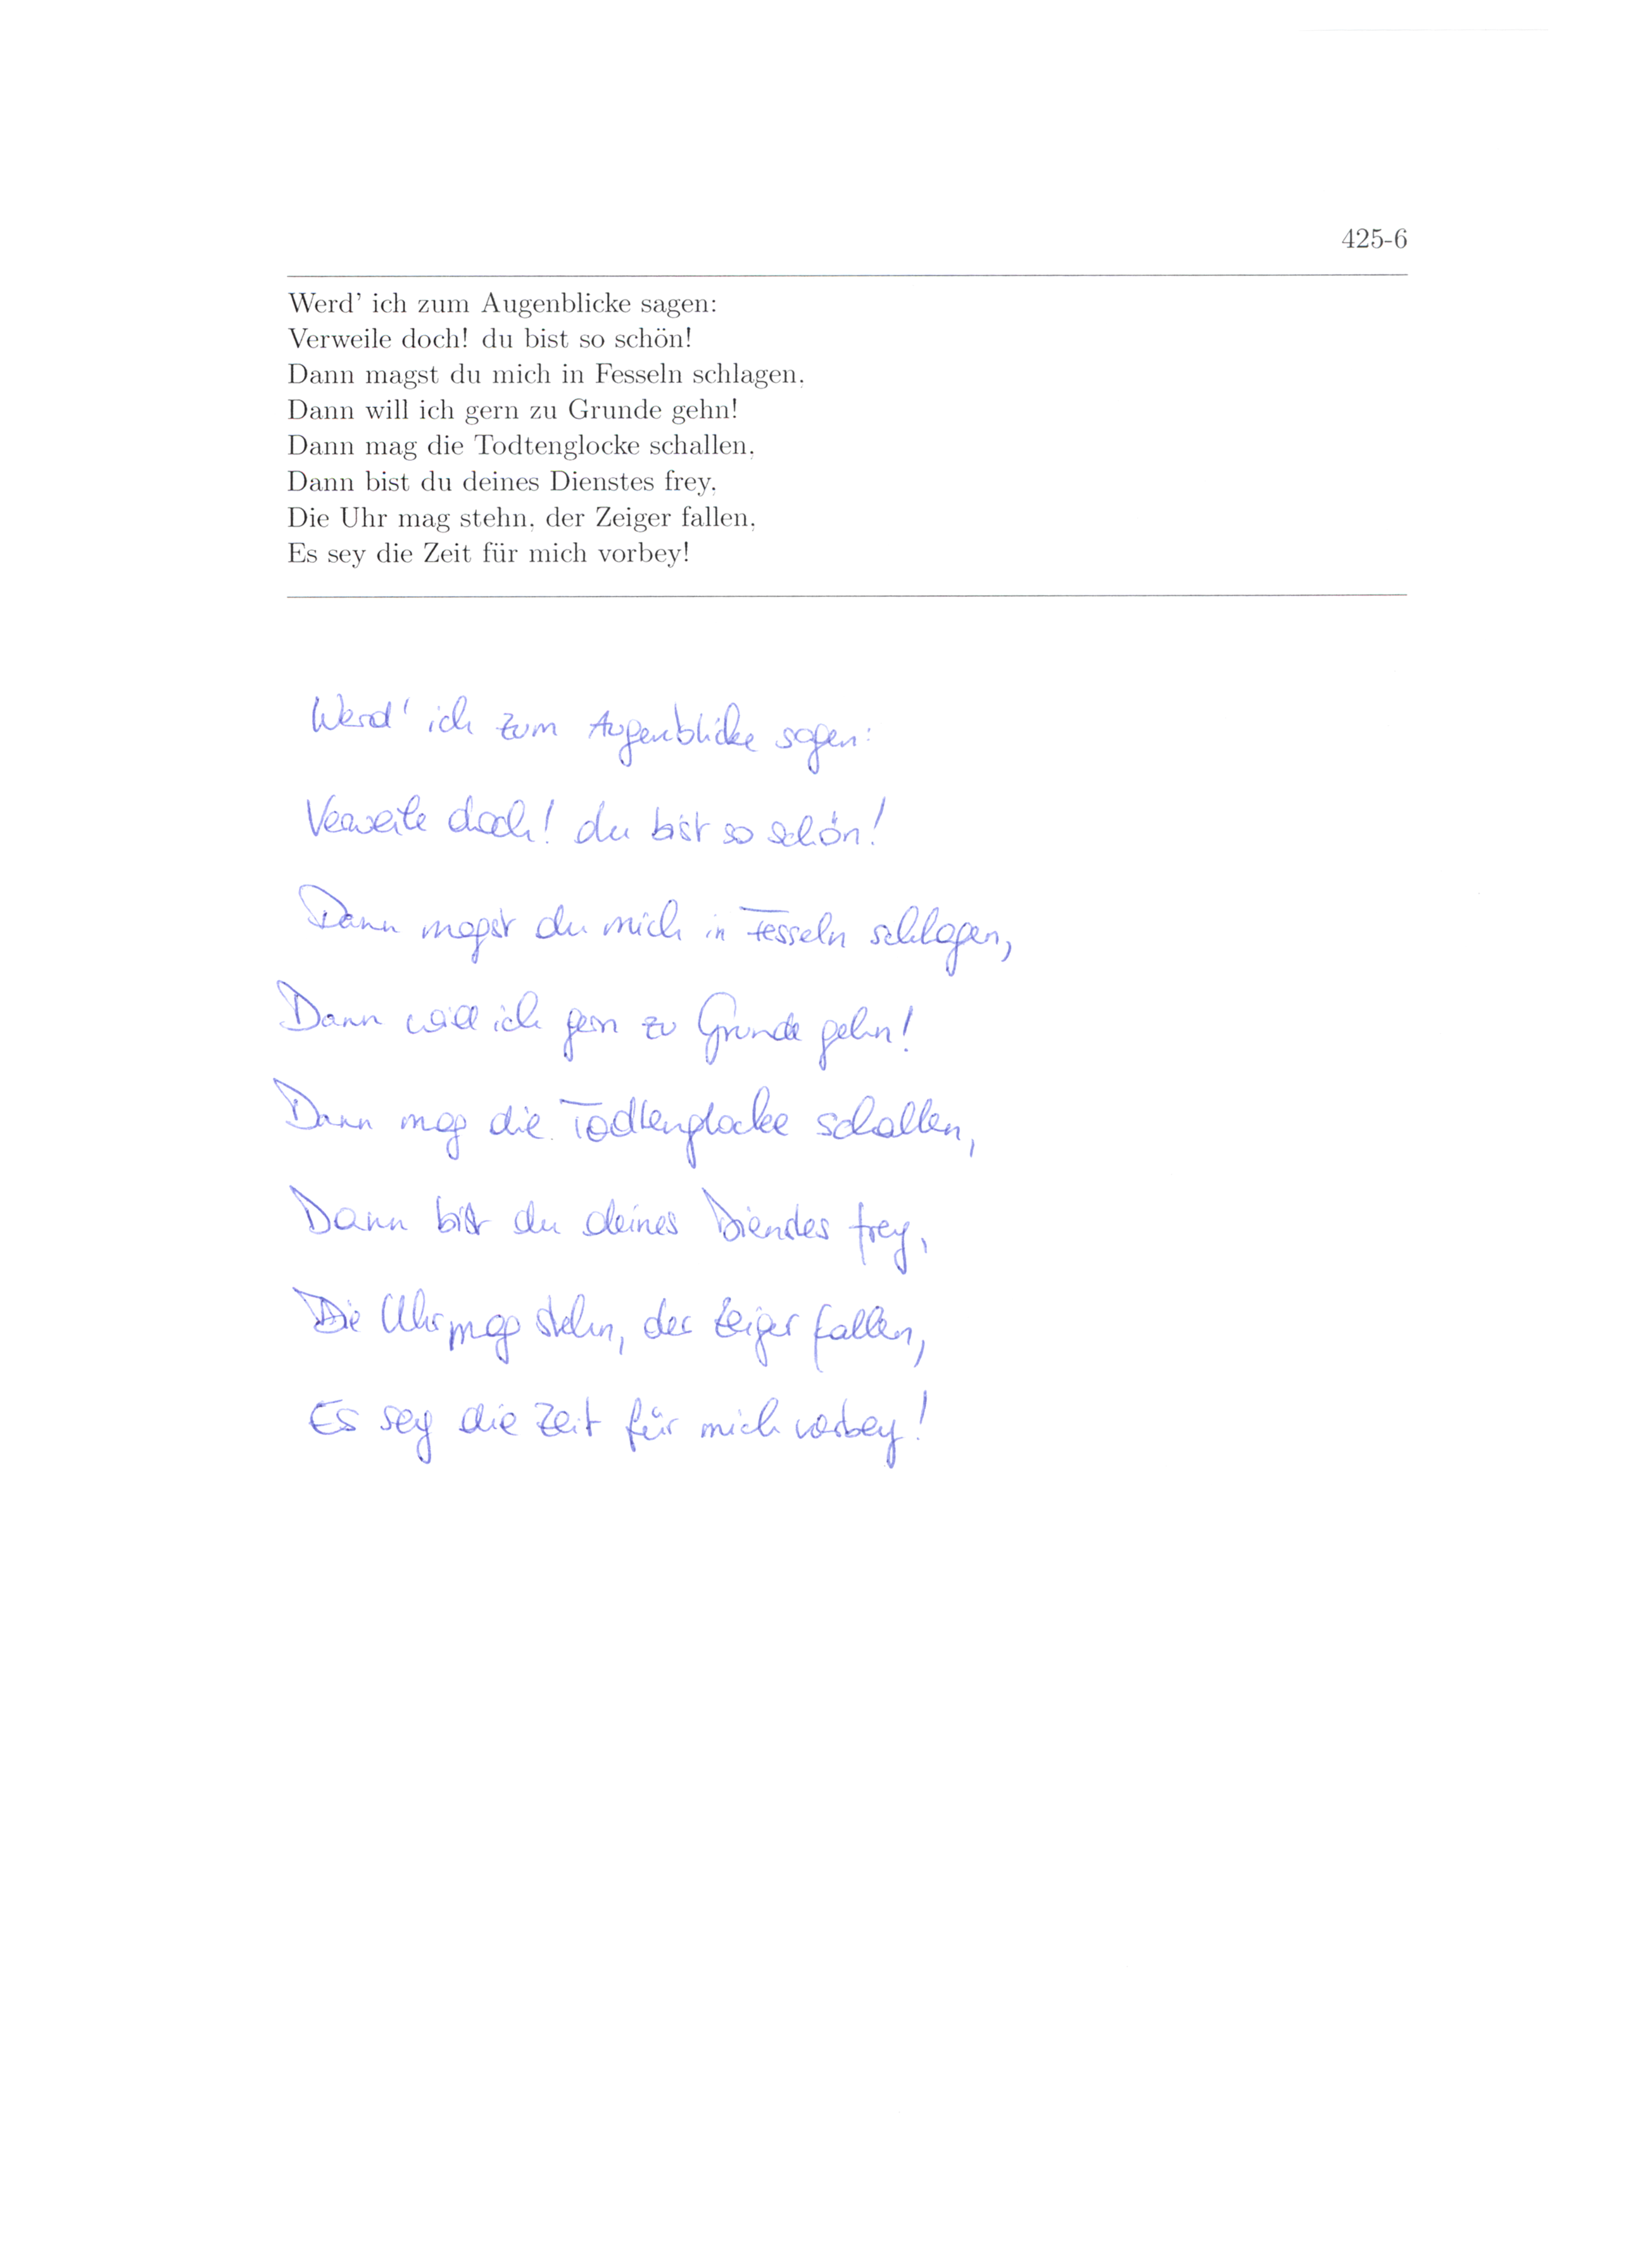 425-6
Werd' ich zum Augenblicke sagen:
Verweile doch! du bist so schön!
Dann magst du mich in Fesseln schlagen,
Dann will ich gern zu Grunde gehn!
Dann mag die Todtenglocke schallen,
Dann bist du deines Dienstes frey,
Die Uhr mag stehn, der Zeiger fallen,
Es sey die Zeit für mich vorbey!
Werd' ich zum Augenblicke sagen:
Verweile doch! du bist so schön!
Dann magst du mich in Fesseln schlagen,
Dann will ich gern zu Grunde gehn!
Dann mag die Todtenglocke schallen,
Dann bist du deines Dienstes frey,
Die Uhr mag stehn, der Zeiger fallen,
Es sey die Zeit für mich vorbey!